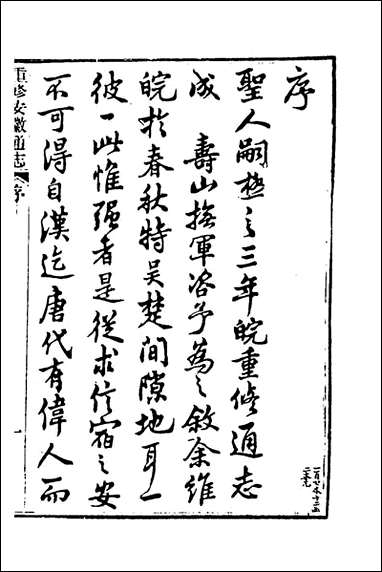 序
聖人嗣極之三年皖重修通志
成　壽山撫軍咨予為之敘余維
皖於春秋特吴楚間隙地耳一
彼一此惟强者是從求信宿之安
不可得自漢迄唐代有偉人而
重修安徽通志
序
一